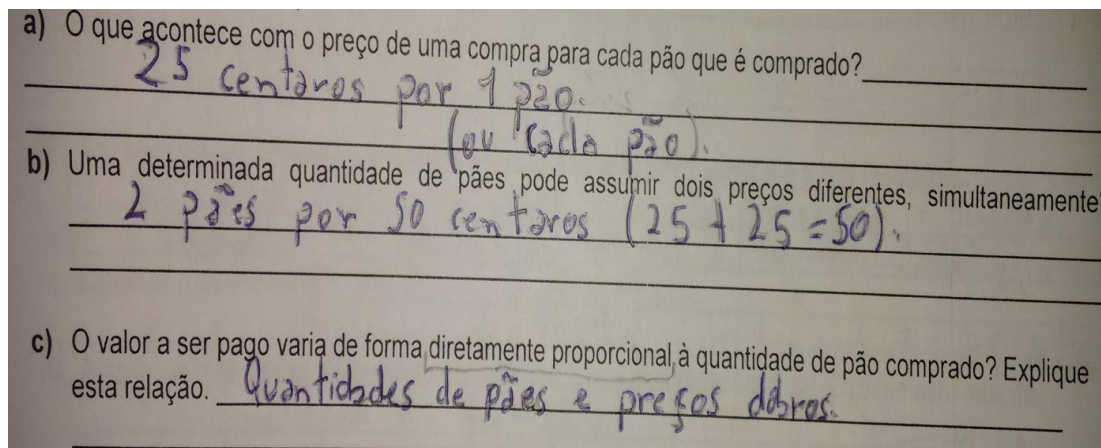 a) O que acontece com o preço de uma compra para cada pão que é comprado?
25 centavos por 1 pão.
(ou cada pão).
b) Uma determinada quantidade de pães pode assumir dois preços diferentes, simultaneamente
2 pães por 50 centavos (25 + 25 = 50).
c) O valor a ser pago varia de forma diretamente proporcional, à quantidade de pão comprado? Explique
esta relação. Quantidades de pães e preços dobros.